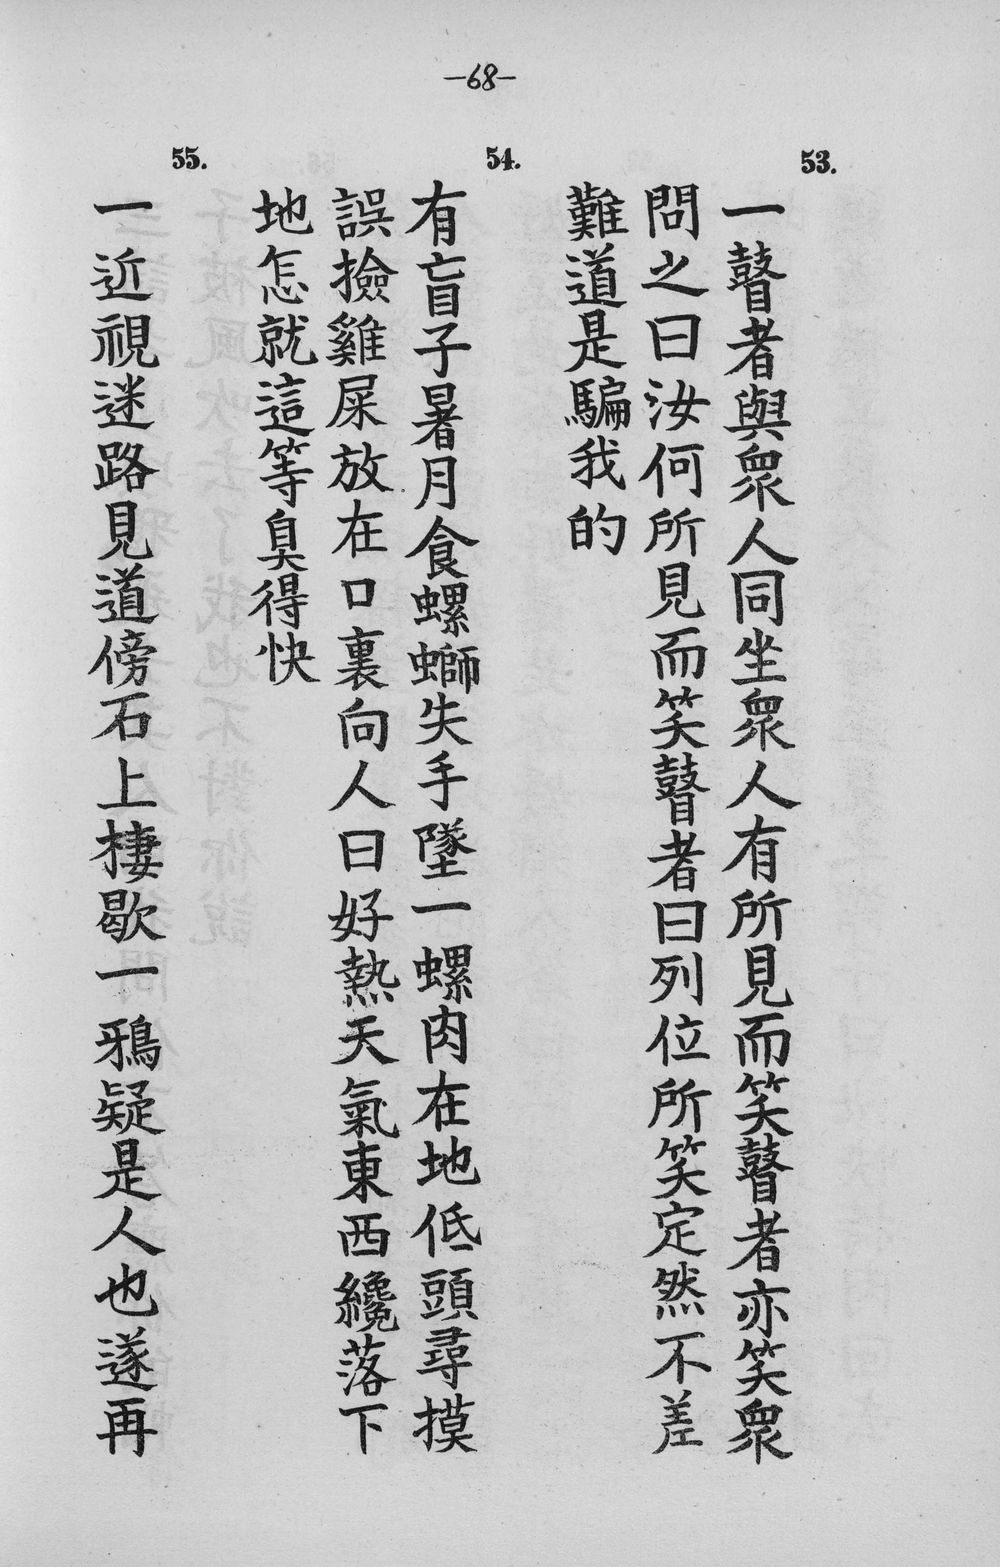 —68—
53.
一瞽者與衆人同坐衆人有所見而笑瞽者亦笑衆
問之曰汝何所見而笑瞽者曰列位所笑定然不差
難道是騙我的
54.
有盲子暑月食螺螄失手墜一螺肉在地低頭尋摸
誤撿雞屎放在口裏向人曰好熱天氣東西纔落下
地怎就這等臭得快
55.
一近視迷路見道傍石上棲歇一鴉疑是人也遂再